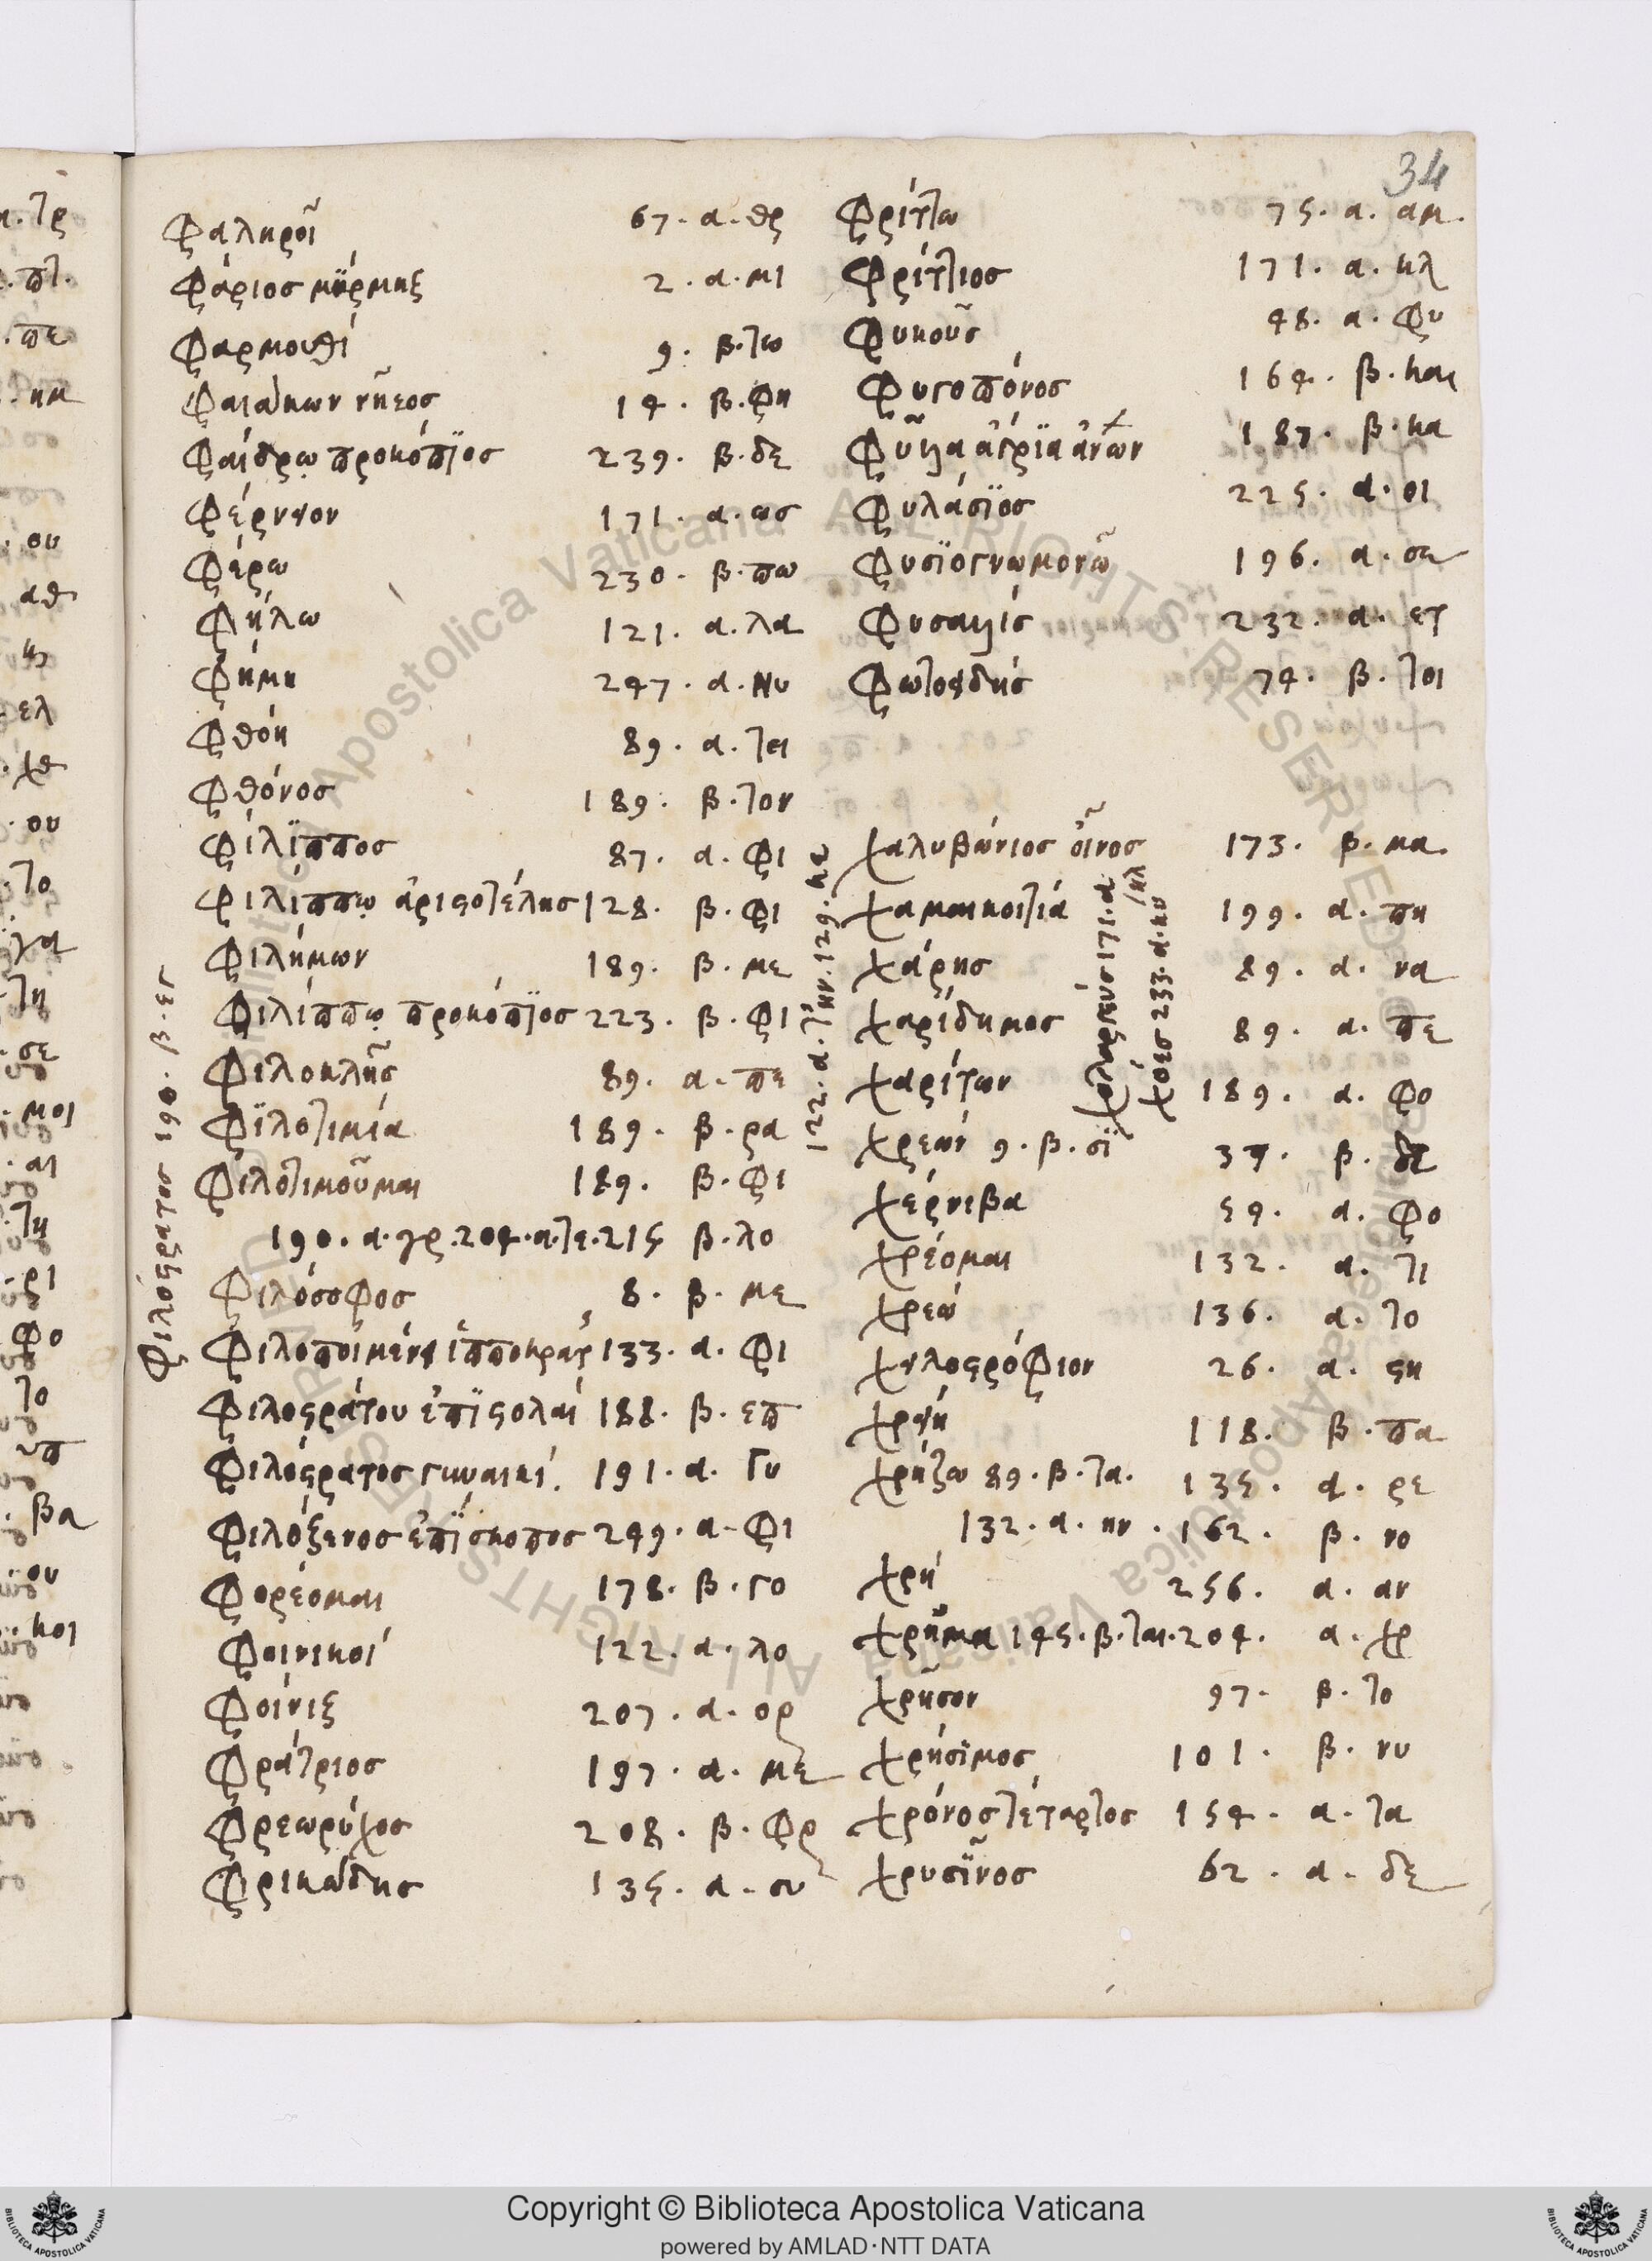 34
Φαληροῖ 67. α. θρ
Φάριος μύρμηξ 2. α. μι
Φαρμουθί 9. β. τω
Φαιάκων νῆεσ 14. β. φη
Φαίδρω προκόπιος 239. β. δε
171. α. ωσ
Φέρω 230. β. πω
Φήλω 121. α. λα
Φήμη 247. α. νυ
Φθόη 89. α. ται
Φθόνος 189. β. τον
Φίλϊππος 87. α. φι
Φιλίππῳ ἀριστοτέλησ 128. β. φι
Φιλήμων 189. β. με
Φιλίππῳ προκόπϊος 223. β. φι
Φιλοκλῆς 89. α. πε
Φϊλοτιμία 189. β. ρα
Φιλοτιμοῦμαι 189. β. φι
190. α. γρ. 204. α. τε. 215 β. λο
Φιλόσοφος 8. β. με
Φιλοποίμενι ἱπποκρατ 133. α. φι
Φιλοστράτου ἐπϊστολαί 188. β. επ
Φιλόστρατος γυναικί. 191. α. Γυ
Φιλόξενος ἐπϊσκοπος 249. α. φι
Φορέομαι 178. β. γο
Φοινικοί 122. α. λο
Φοίνιξ 207. α. ορ
Φράτριος 197. α. με
Φρεωρύχος 208. β. φρ
Φρικώδης 135. α. συ
Φιλόστρατος 190. β. εγ
Φρίττω 75. α. αμ.
Φρίττιος 171. α. κλ
Φυκοῦς 48. α. φυ
Φυγοπόνος 164. β. και
187. β. κα
Φυλάσϊος 225. α. οι
Φυσϊογνωμονῶ 196. α. σα
Φυσαλίς 232. α. ετ
74. β. τοι
Χαλυβώνιος οἶνος 173. β. μα.
Χαμαικοιτία 199. α. πη
Χάρης 89. α. να
Χαρίδημος 89. α. πε
Χαρίτων 189. α. φο
Χρεών 9. β. σϊ 37. β. δε
Χέρνιβα 59. α. φο
Χρέομαι 132. α. τι
Χρεώ 136. α. το
Χηλοστρόφιον 26. α. ση
118. β. πα
Χρήζω 89. β. τα. 135. α. ρε
132. α. κν. 162. β. νο
Χρή 256. α. αν
Χρῆμα 145. β. ται. 204. α. χρ
Χρῆσον 97. β. το
Χρήσϊμος 101. β. νυ
Χρόνος τέταρτος 154. α. τα
Χρυσῖνος 62. α. δε
122. α. την. 129. κε
Χολαργεύς 171. α. κλ
Χόεσ 233. α. κυ
Copyright © Biblioteca Apostolica Vaticana
powered by AMLAD·NTT DATA